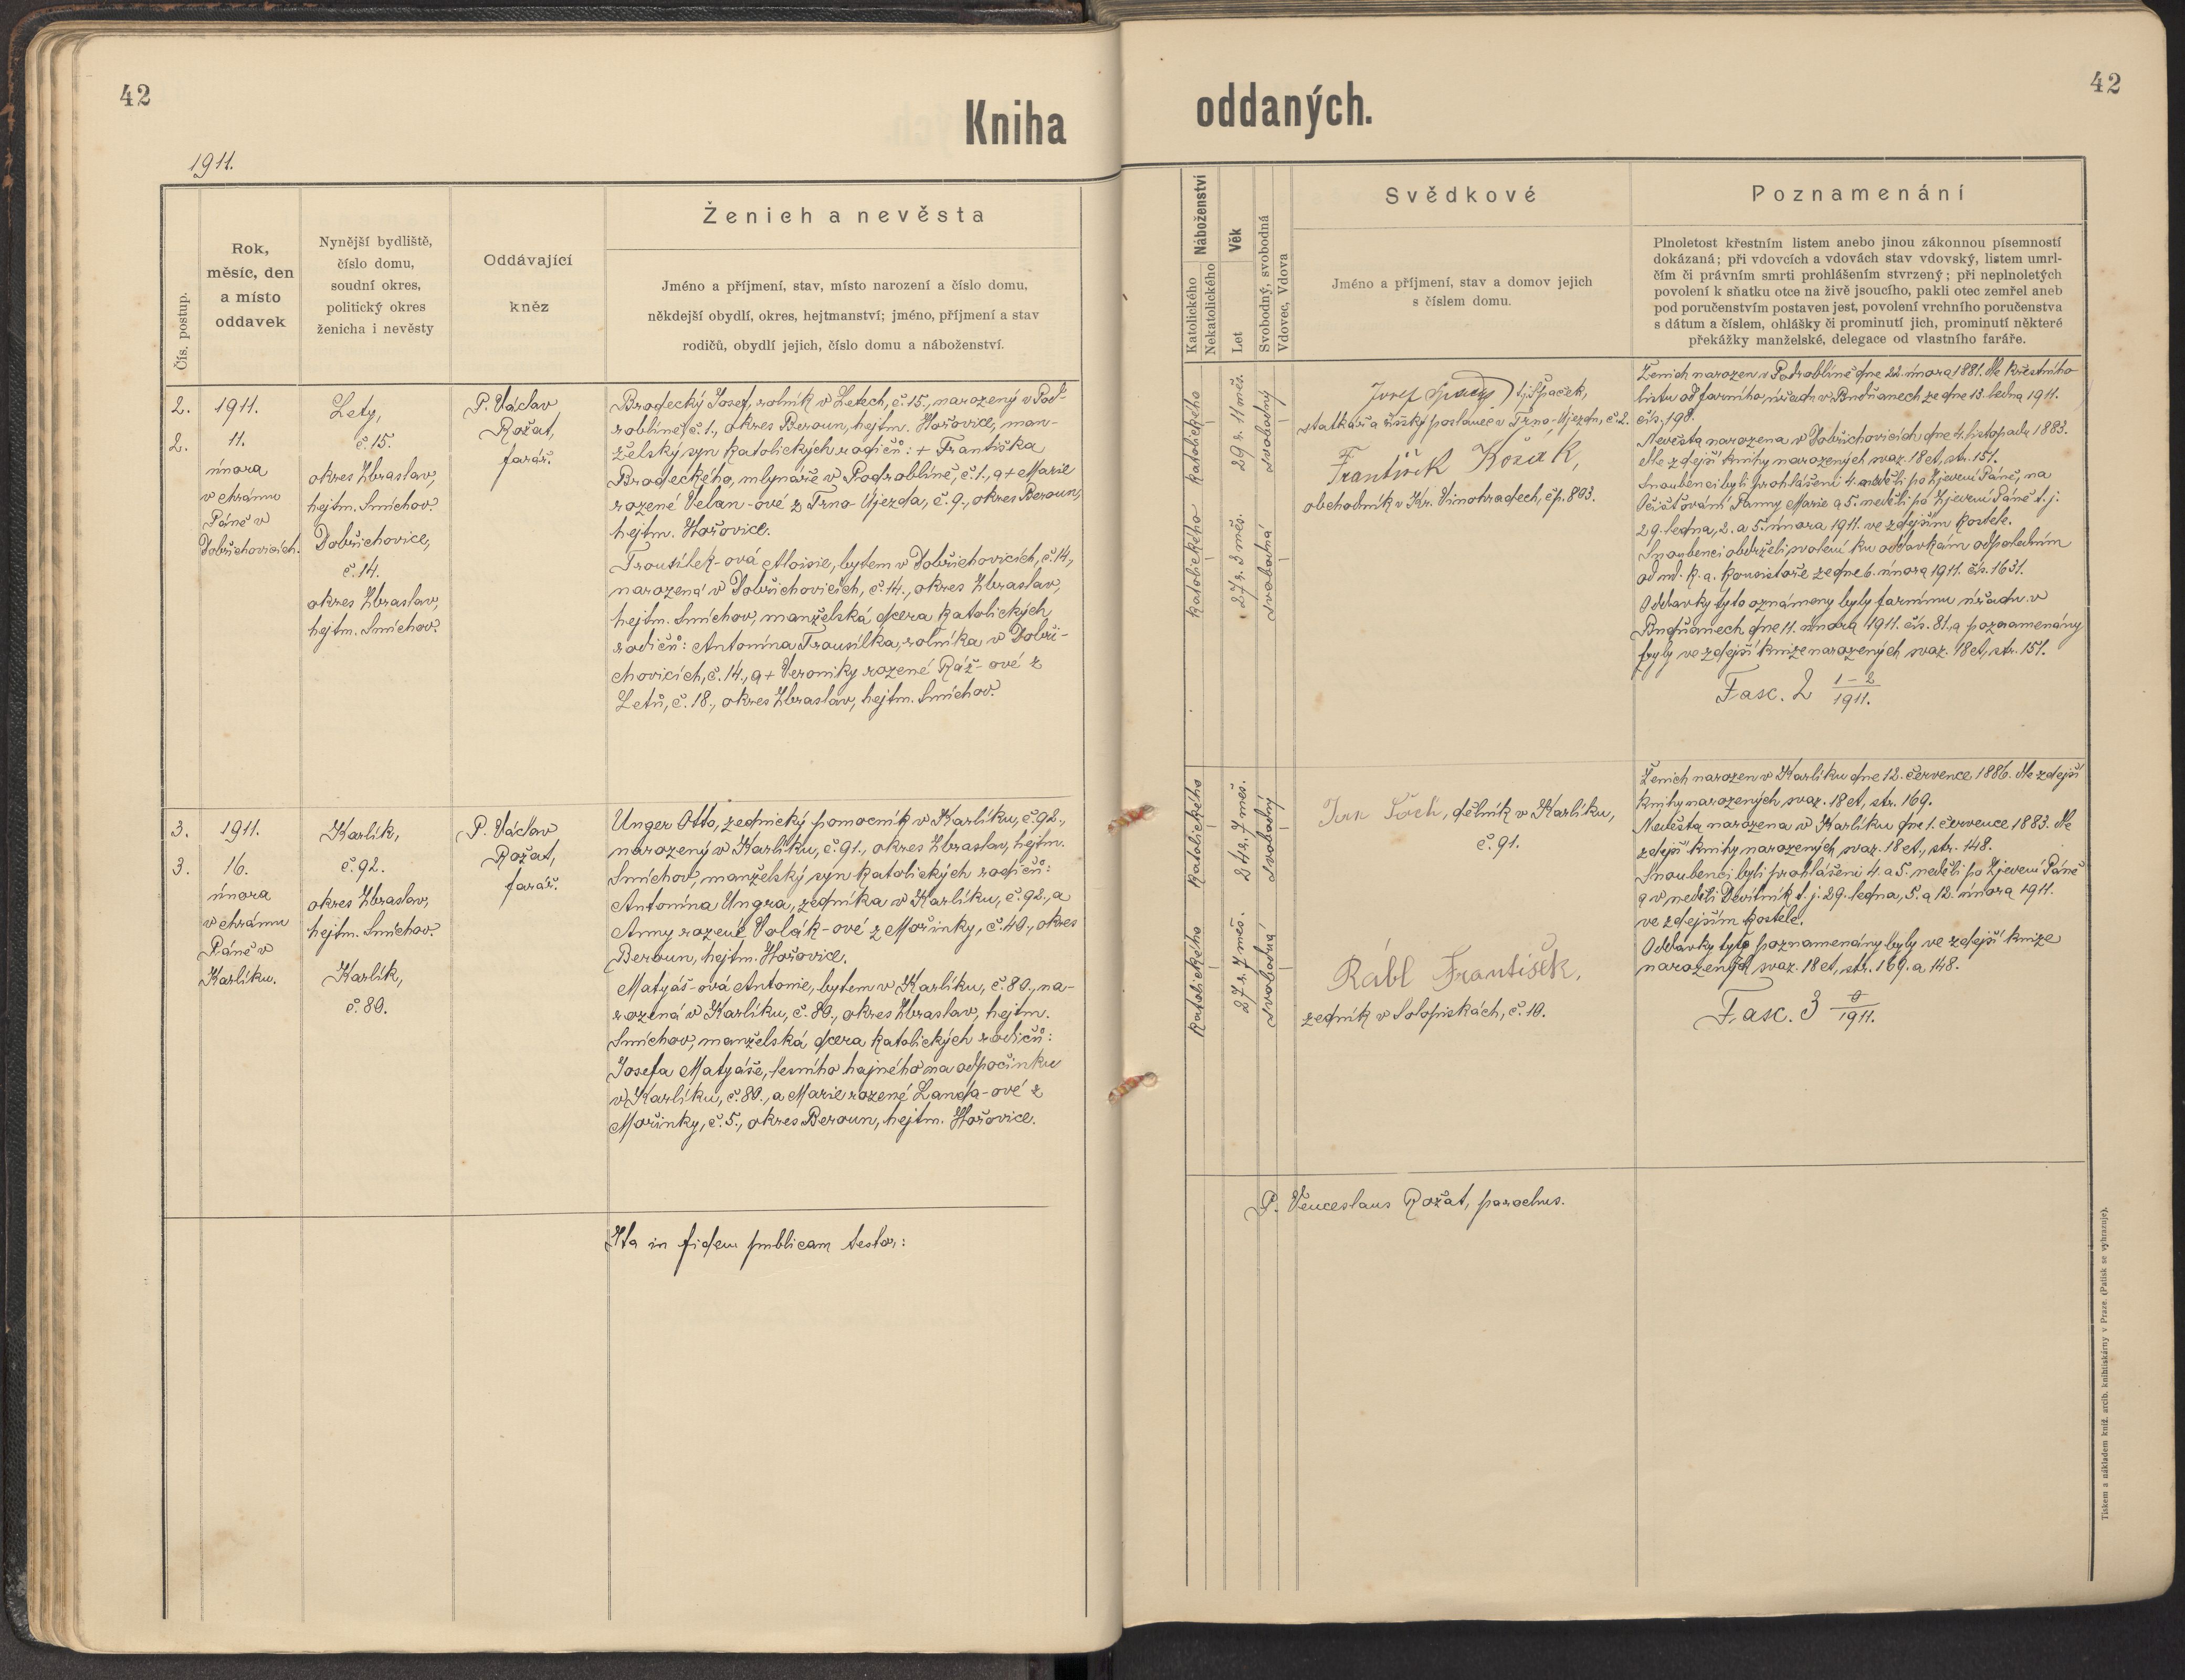 42
42
Kniha
oddaných.
1911.
Čís. postup.
Rok,
měsíc, den
a místo
oddavek
Nynější bydliště,
číslo domu,
soudní okres,
politický okres
ženicha i nevěsty
Oddávající
kněz
Ženich a nevěsta
Jméno a příjmení, stav, místo narození a číslo domu,
někdejší obydlí, okres, hejtmanství; jméno, příjmení a stav
rodičů, obydlí jejich, číslo domu a náboženství.
2.
2.
1911.
11.
února
v chrámu
Páně v
Dobřichovicích.
Lety,
č. 15.
okres Zbraslav,
hejtm. Smíchov.
Dobřichovice,
č. 14.
okres Zbraslav,
hejtm. Smíchov.
P. Václav
Rožat,
farář.
Brodecký Josef, rolník v Letech, č. 15., narozený v Pod-
roblíně, č. 1., okres Beroun, hejtm. Hořovice, man-
želský syn katolických rodičů: + Františka
Brodeckého, mlynáře v Podroblíně, č. 1., a + Marie
rozené Velan-ové z Trno-Újezda, č. 9., okres Beroun,
hejtm. Hořovice.
Trousílek-ová Aloisie, bytem v Dobřichovicích, č. 14.,
narozená v Dobřichovicích, č. 14., okres Zbraslav,
hejtm. Smíchov, manželská dcera katolických
rodičů: Antonína Trousílka, rolníka v Dobři-
chovicích, č. 14., a + Veroniky rozené Ráž-ové z
Letů, č. 18., okres Zbraslav, hejtm. Smíchov.
3.
3.
1911.
16.
února
v chrámu
Páně v
Karlíku.
Karlík,
č. 92.
okres Zbraslav,
hejtm. Smíchov.
Karlík,
č. 80.
P. Václav
Rožat,
farář.
Unger Otto, zednický pomocník v Karlíku, č. 92.,
narozený v Karlíku, č. 91., okres Zbraslav, hejtm.
Smíchov, manželský syn katolických rodičů:
Antonína Ungra, zedníka v Karlíku, č. 92., a
Anny rozené Volák-ové z Mořinky, č. 40., okres
Beroun, hejtm. Hořovice.
Matyáš-ová Antonie, bytem v Karlíku, č. 80., na-
rozená v Karlíku, č. 80., okres Zbraslav, hejtm.
Smíchov, manželská dcera katolických rodičů:
Josefa Matyáše, lesního hajného na odpočinku
v Karlíku, č. 80., a Marie rozené Landa-ové z
Mořinky, č. 5., okres Beroun, hejtm. Hořovice.
Ita in fidem publicam testor:
Náboženství
Katolického
Nekatolického
Věk
Let
Svobodný, svobodná
Vdovec, Vdova
Svědkové
Jméno a příjmení, stav a domov jejich
s číslem domu.
Poznamenání
Plnoletost křestním listem anebo jinou zákonnou písemností
dokázaná; při vdovcích a vdovách stav vdovský, listem umrl-
čím či právním smrti prohlášením stvrzený; při neplnoletých
povolení k sňatku otce na živě jsoucího, pakli otec zemřel aneb
pod poručenstvím postaven jest, povolení vrchního poručenstva
s dátum a číslem, ohlášky či prominutí jich, prominutí některé
překážky manželské, delegace od vlastního faráře.
Katolického Katolického
29 r. 11 měs.
27 r. 3 měs.
Svobodný
Svobodná
Josef Špaček) tj. Špaček,
statkář a říšský poslanec v Trno-Újezdu, č. 2.
František Kožák,
obchodník v Kr. Vinohradech, čp. 893.
Ženich narozen v Podroblíně dne 22. února 1881. dle křestního
listu od farního úřadu v Budňanech ze dne 13. ledna 1911.
čís. 198.
Nevěsta narozena v Dobřichovicích dne 4. listopadu 1883.
dle zdejší knihy narozených svaz. 18 et, str. 151.
Snoubenci byli prohlášeni 4. neděli po Zjevení Páně, na
Očišťování Panny Marie a 5. neděli po Zjevení Páně t. j.
29. ledna, 2. a 5. února 1911. ve zdejším kostele.
Snoubenci obdrželi svolení ku oddavkám odpoledním
od nd. k. a. konsistoře ze dne 6. února 1911. čís. 1631.
Oddavky tyto oznámeny byly farnímu úřadu v
Budňanech dne 11. února 1911. čís. 81., a poznamenány
byly ve zdejší knize narozených svaz. 18 et, str. 151.
Fasc. 2 1-2/1911.
Katolického Katolického
24 r. 7 měs.
27 r. 7 měs.
Svobodný
Svobodná
Jan Šoch, dělník v Karlíku,
č. 91.
Rábl František,
zedník v Solopiskách, č. 10.
Ženich narozen v Karlíku dne 12. července 1886. dle zdejší
knihy narozených svaz. 18 et, str. 169.
Nevěsta narozena v Karlíku dne 1. července 1883. dle
zdejší knihy narozených svaz. 18 et, str. 148.
Snoubenci byli prohlášeni 4. a 5. neděli po Zjevení Páně
a v neděli Devítník t. j. 29. ledna, 5. a 12. února 1911.
ve zdejším kostele.
Oddavky tyto poznamenány byly ve zdejší knize
narozených svaz. 18 et, str. 169. a 148.
Fasc. 3 0/1911.
P. Venceslaus Rožat, parochus.
Tiskem a nákladem kníž. arcib. knihtiskárny v Praze. (Patisk se vyhrazuje).